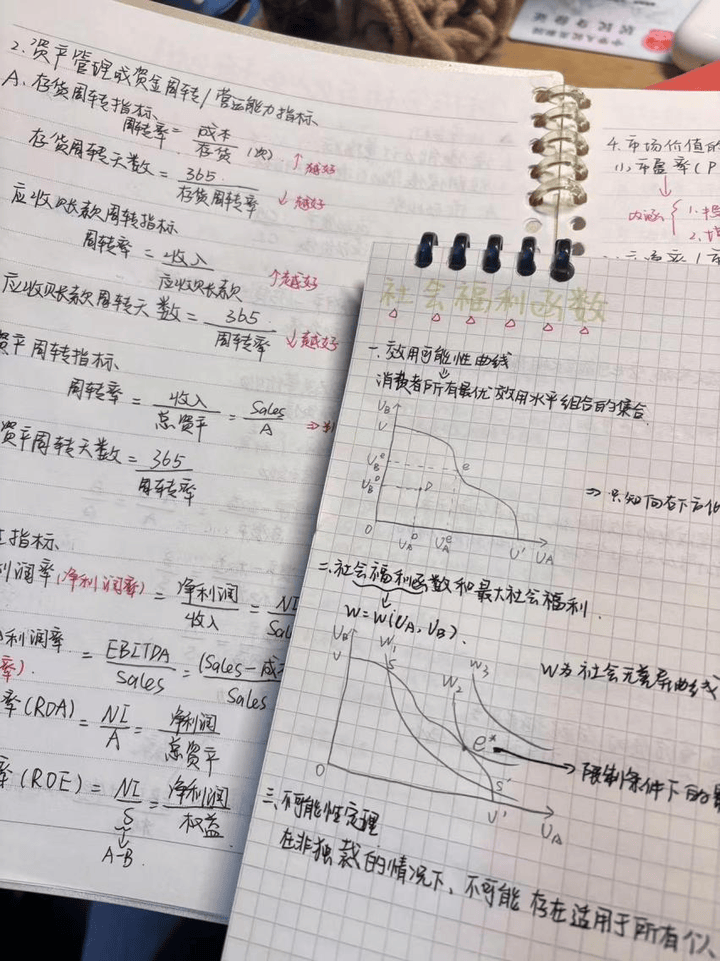 2.资产管理或资金周转/营运能力指标
A.存货周转指标
周转率=成本/存货(次) ↑越好
存货周转天数=365/存货周转率 ↓越好
应收账款周转指标
周转率=收入/应收账款 个越好
应收账款周转天数=365/周转率 ↓越好
资产周转指标
周转率=收入/总资产=Sales/A ⇒
资产周转天数=365/周转率
指标
利润率(净利润率)=净利润/收入=NI/Sal
利润率=EBITDA/Sales=(Sales-成/Sales
率).
率(ROA)=NI/A=净利润/总资产
率(ROE)=NI/S=净利润/权益
A-B.
4.市场价值的
(1)市盈率(P
内涵{1.
2.
社会福利函数
一.效用可能性曲线
消费者所有最优效用水平组合的集合.
UB
U
UB^e
e
UB^D
D
O
UA^D UA^e
U' UA
⇒只知向右下方
二.社会福利函数和最大社会福利.
W=W(UA,UB).
UB
U
W1
S
W2
W3
W为社会无差异曲线
e*
→限制条件下的最
O
S'
U'
UA
三.不可能性定理
在非独裁的情况下,不可能存在适用于所有个人